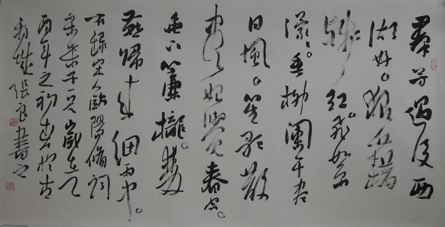 群芳過後西
湖好。狼藉
殘紅。飛絮
濛濛。垂柳闌干盡
日風。笙歌散
始覺春空。
垂下簾櫳。雙
燕歸來細雨中。
右錄宋人歐陽修詞
采桑子一首歲在丁
酉年之初春於古
張良書之